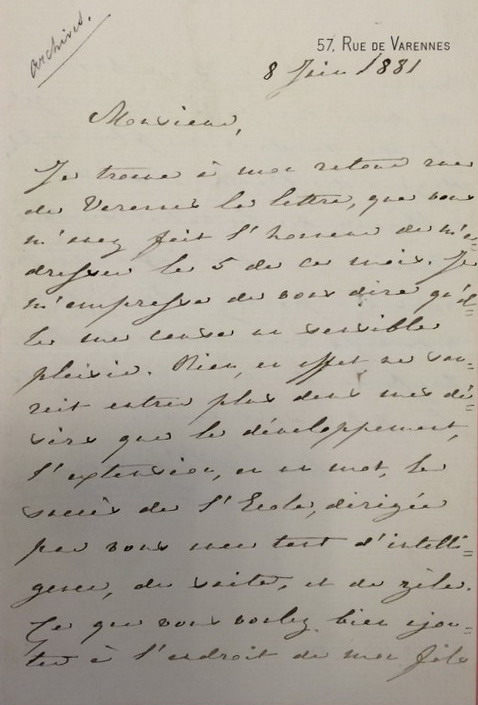 Archives.
57, Rue de Varennes
8 Juin 1881
Monsieur,
Je trouve à mon retour rue
de Varennes la lettre, que vous
m'avez fait l'honneur de m'a=
dresser le 5 de ce mois. Je
m'empresse de vous dire qu'el=
le me cause un sensible
plaisir. Rien, en effet ne sau=
rait entrer plus dans mes dé=
sirs que le développement,
l'extension, en un mot, le
succès de l'Ecole, dirigée
par vous avec tant d'intelli=
gence, de suite, et de zèle.
Ce que vous voulez bien ajou=
ter à l'endroit de mon fils